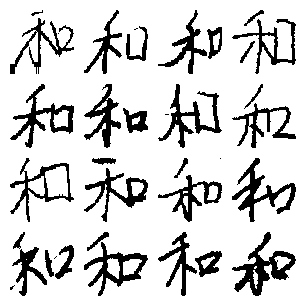 和和和和
和和和和
和和和和
和和和和